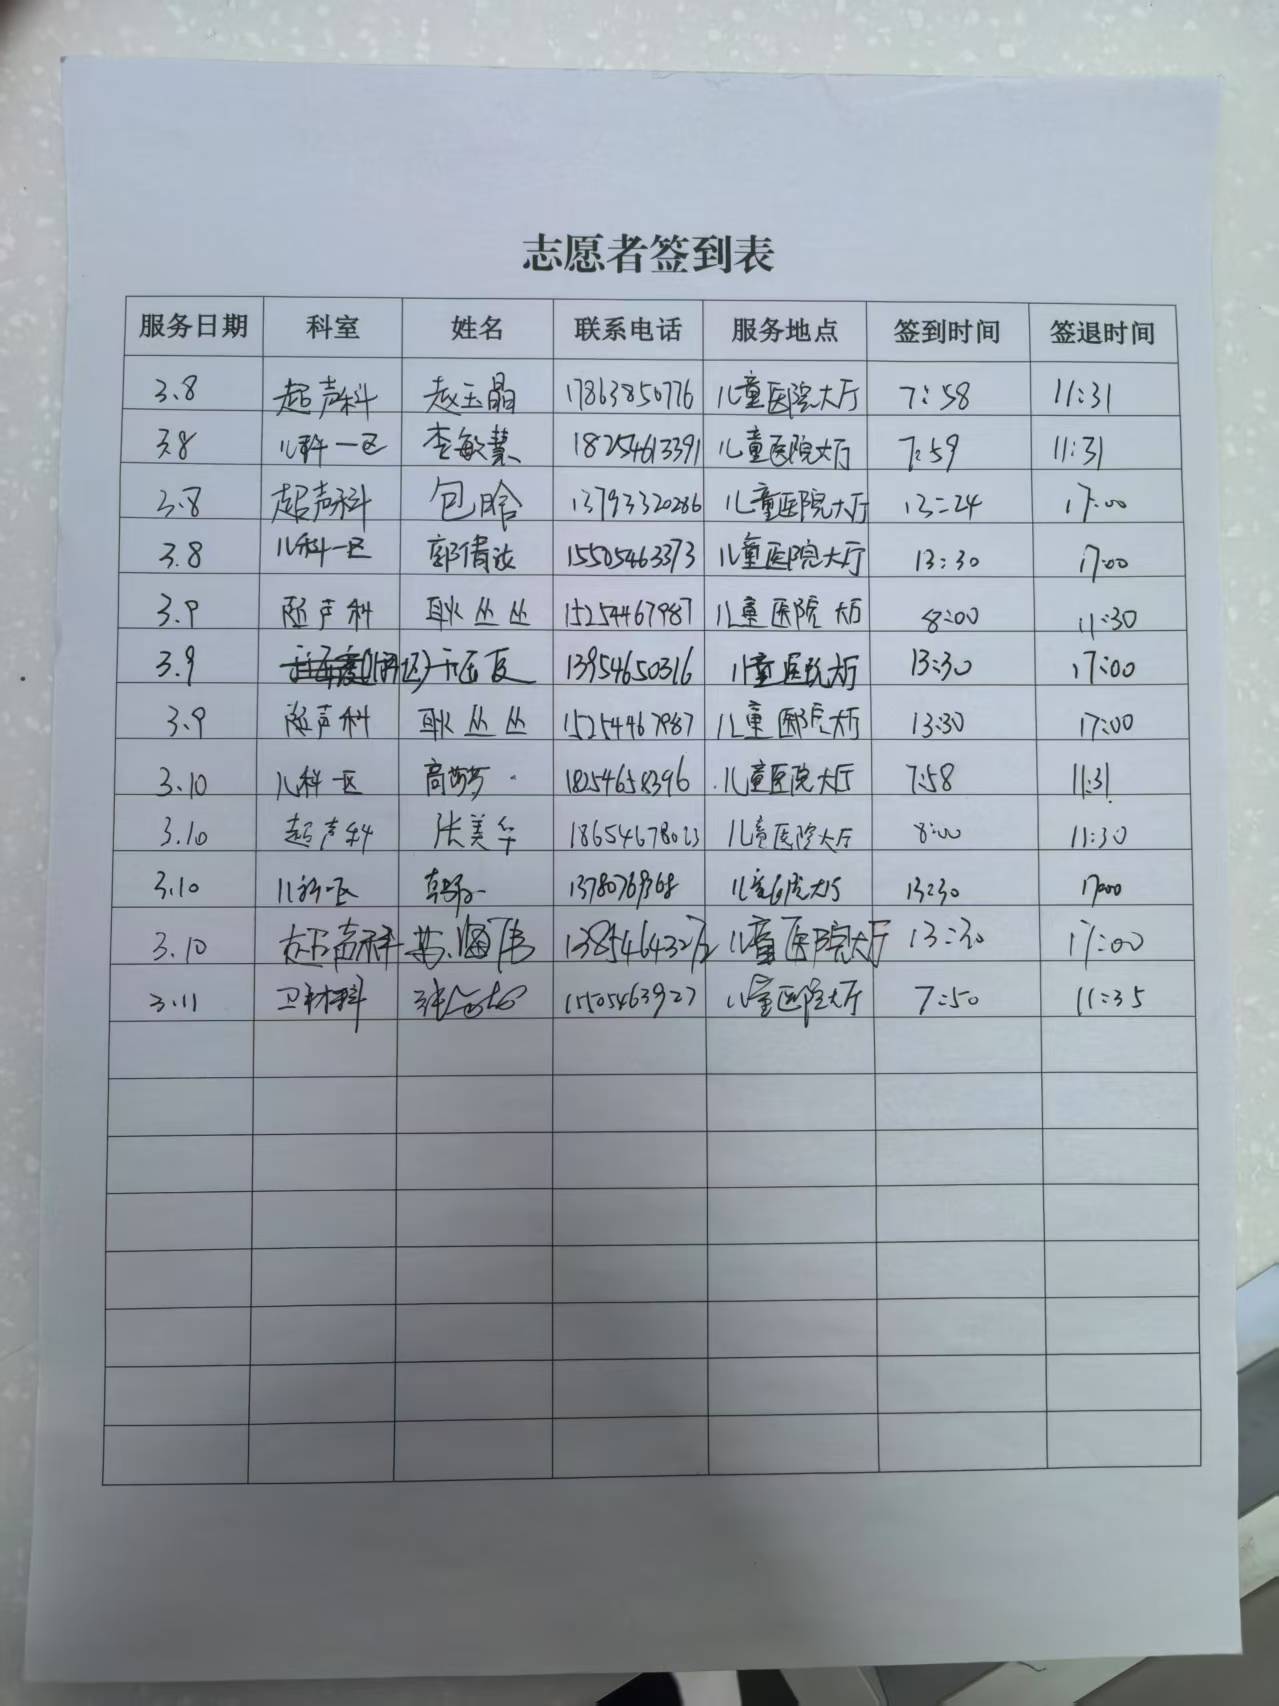 志愿者签到表
服务日期 科室 姓名 联系电话 服务地点 签到时间 签退时间
3.8 超声科 赵玉晶 17863850776 儿童医院大厅 7:58 11:31
3.8 儿科一区 李敏慧 18254613391 儿童医院大厅 7:59 11:31
3.8 超声科 包晗 13793320286 儿童医院大厅 13:24 17:00
3.8 儿科一区 郭倩 15505463373 儿童医院大厅 13:30 17:00
3.9 超声科 耿丛丛 15254467987 儿童医院大厅 8:00 11:30
3.9 13954650316 儿童医院大厅 13:30 17:00
3.9 超声科 耿丛丛 15254467987 儿童医院大厅 13:30 17:00
3.10 儿科一区 高莎莎 18254658396 儿童医院大厅 7:58 11:31
3.10 超声科 张美华 18654678023 儿童医院大厅 8:00 11:30
3.10 儿科一区 儿童医院大厅 13:30 17:00
3.10 超声科 苏海伟 儿童医院大厅 13:30 17:00
3.11 卫材科 15505463927 儿童医院大厅 7:50 11:35